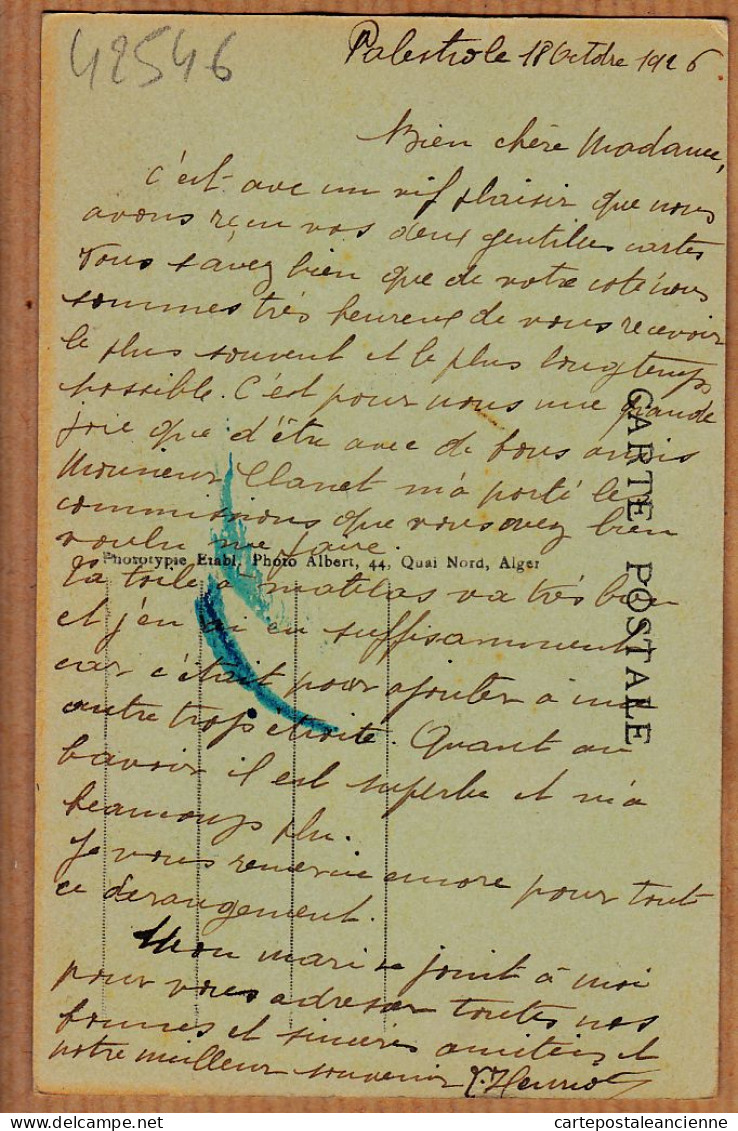 42546
Palestro le 18 Octobre 1926
Bien chère Madame,
C'est avec un vif plaisir que nous
avons reçu vos deux gentilles cartes
Vous savez bien que de votre coté nous
sommes très heureux de vous recevoir
le plus souvent et le plus longtemps
possible. C'est pour nous une grande
joie que d'être avec de bons amis
Monsieur Clanet m'a porté les
commissions que vous avez bien
voulu me faire.
Phototypie Etabl. Photo Albert, 44, Quai Nord, Alger
La toile à matelas va très bien
et j'en ai eu suffisamment
car c'était pour ajouter à une
autre trop étroite. Quant au
bavoir il est superbe et m'a
beaucoup plu.
Je vous remercie encore pour tout
ce dérangement.
Mon mari se joint à moi
pour vous adresser toutes nos
bonnes et sincères amitiés et
notre meilleur souvenir Henriot
CARTE POSTALE
delcampe.net
cartepostaleancienne